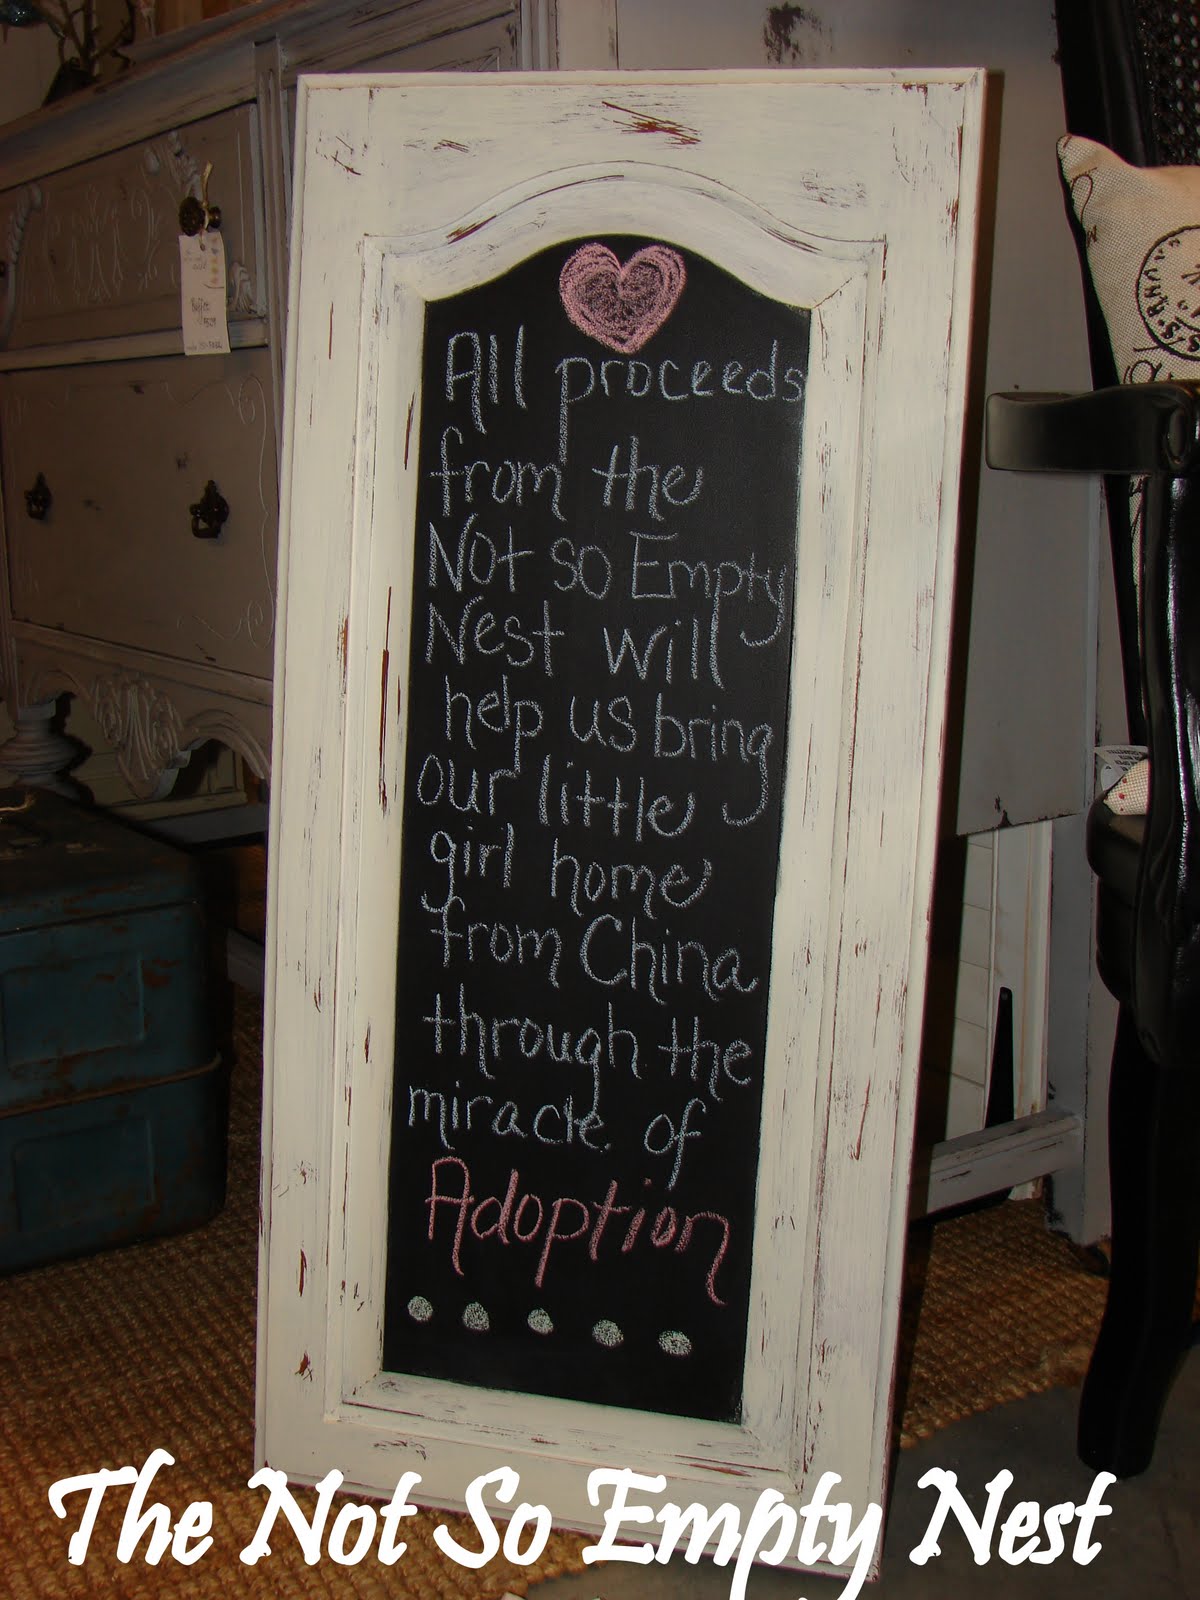 All proceeds
from the
Not so Empty
Nest will
help us bring
our little
girl home
from China
through the
miracle of
Adoption
The Not So Empty Nest